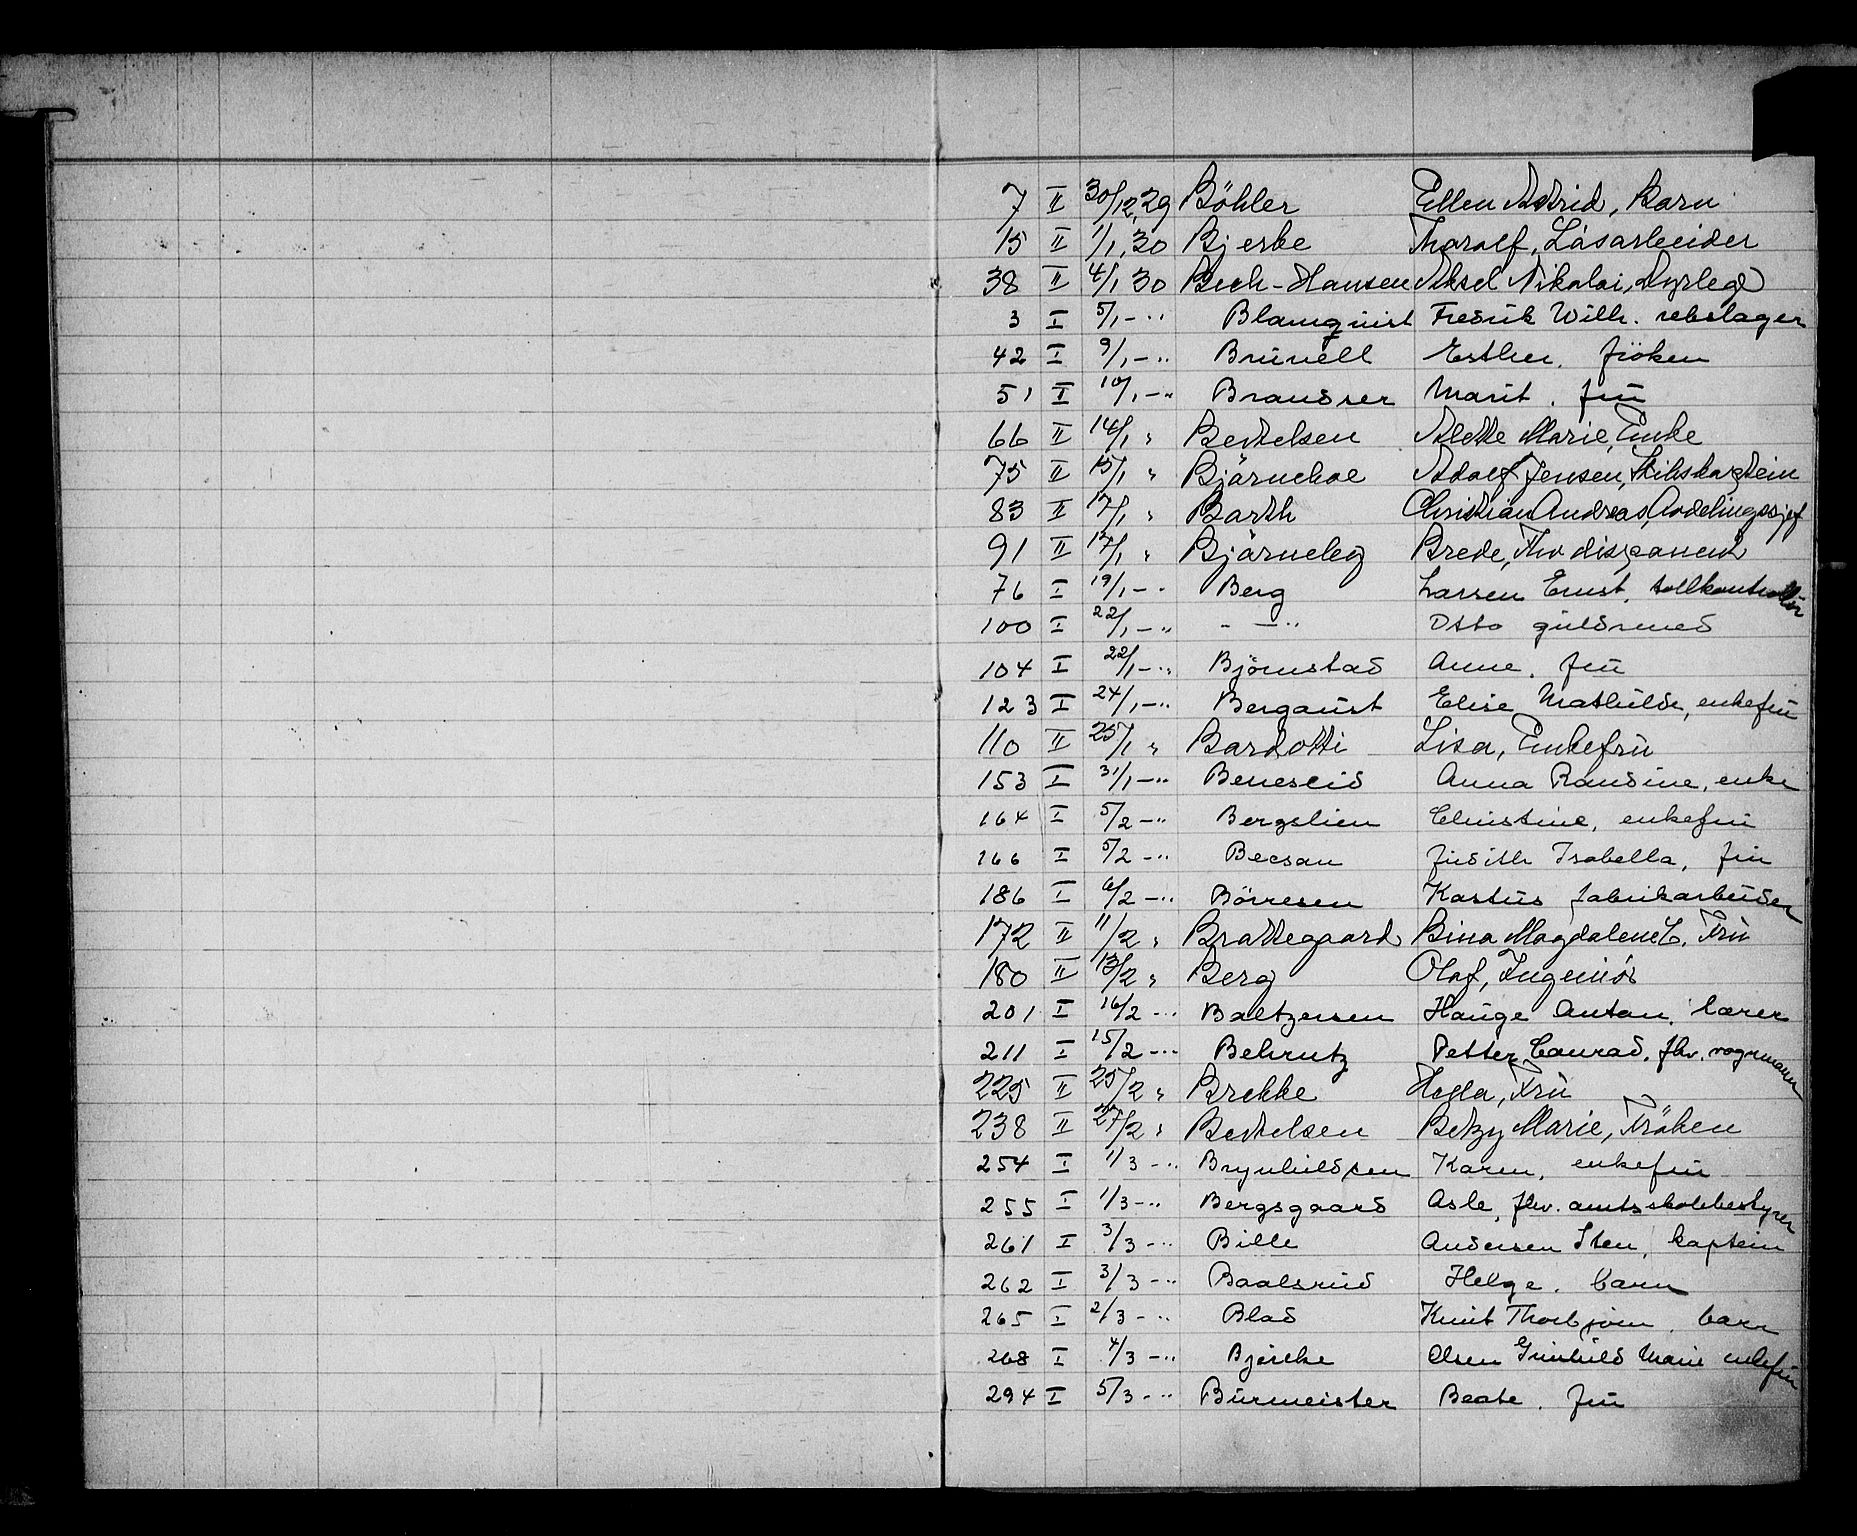 7 II 30/12,29 Böhler Ellen Astrid, Barn
15 II 1/1,30 Bjerke Thoralf, Låsarbeider
38 II 4/1 30 Bech-Hansen Aksel Nikolai, Dyrlege
3 I 5/1 - " Blomquist Fredrik Wilh. rebslager
42 I 9/1 - " Brunell Esther, fröken
51 I 10/1 - " Brandser Marit, fru
66 II 14/1 " Bertelsen Alette Marie, Enke
75 II 15/1 " Björneboe Adolf Jensen, Skibskaptein
83 II 17/1 " Barth Christian Andreas, Avdelingssjef
91 II 17/1 " Björneby Brede, Fhv disponent
76 I 19/1 - " Berg Larsen Ernst, tollkontrollör
100 I 22/1 - " - " - Otto guldsmed
104 I 22/1 - " Björnstad Anne, fru
123 I 24/1 - " Bergqvist Elise Mathilde, enkefru
110 II 25/1 " Bardotti Lisa, Enkefru
153 I 31/1 - " Anna Randine, enke
164 I 5/2 - " Bergslien Christine, enkefru
166 I 5/2 - " Judith Isabella, fru
186 I 6/2 - " Börresen Kastus fabrikarbeider
172 II 11/2 " Brattegaard Bina Magdalene C. Fru
180 II 13/2 " Berg Olaf, Ingeniör
201 I 16/2 - " Baltzersen Hauge Anton, lærer
211 I 15/2 - " Behrntz Petter Conrad, fhv. vognmann
225 II 25/2 " Brekke Helga, Fru
238 II 27/2 " Bertelsen Betzy Marie, Fröken
254 I 1/3 - " Brynhildsen Karen, enkefru
255 I 1/3 - " Bergsgaard Asle, fhv. amtsskolebestyrer
261 I 3/3 - " Bille Andersen Sten, kaptein
262 I 3/3 - " Baalsrud Helge, barn
265 I 2/3 - " Blad Knut Thorbjörn, barn
268 I 4/3 - " Bjercke Olsen Gunhild Marie enkefru
294 I 5/3 - " Burmeister Beate, fru